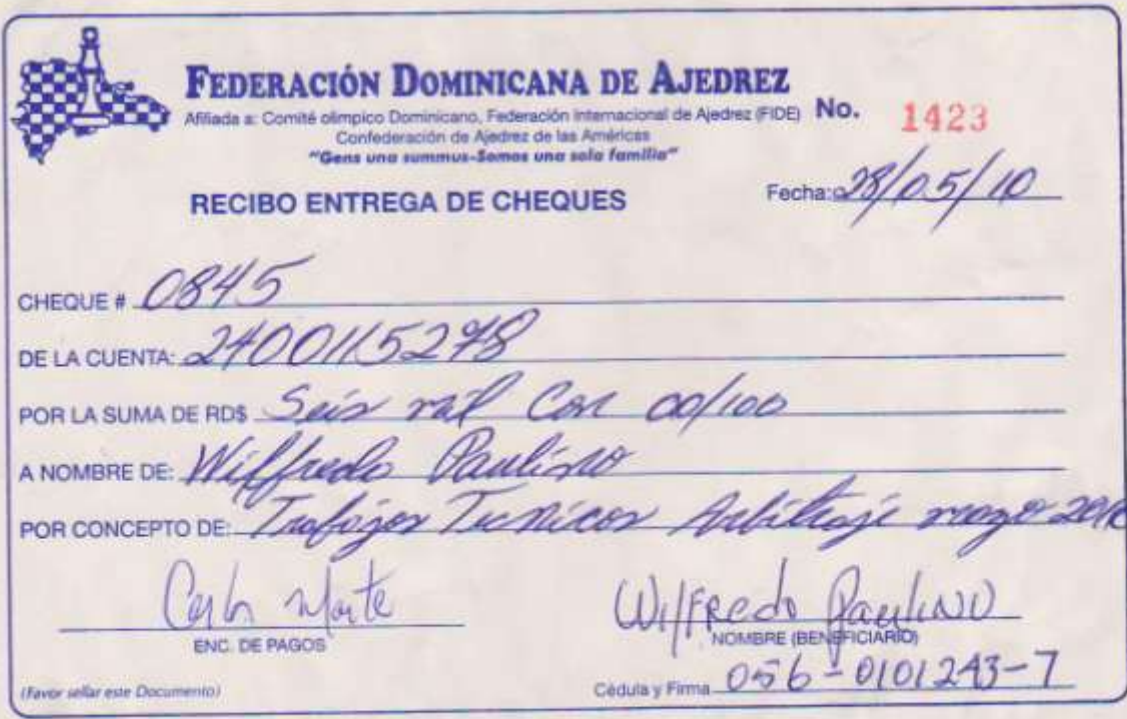 FEDERACIÓN DOMINICANA DE AJEDREZ
Afiliada a: Comité olímpico Dominicano, Federación Internacional de Ajedrez (FIDE)
No. 1423
Confederación de Ajedrez de las Américas
"Gens una summus-Somos una sola familia"
RECIBO ENTREGA DE CHEQUES
Fecha: 28/05/10
CHEQUE # 0845
DE LA CUENTA: 2400115278
POR LA SUMA DE RD$ Seis mil Con 00/100
A NOMBRE DE: Wilfredo Paulino
POR CONCEPTO DE: Trabajos Tecnicos Arbitraje mayo 2010
Carlos Marte
ENC. DE PAGOS
Wilfredo Paulino
NOMBRE (BENEFICIARIO)
(Favor sellar este Documento)
Cédula y Firma 056-0101243-7